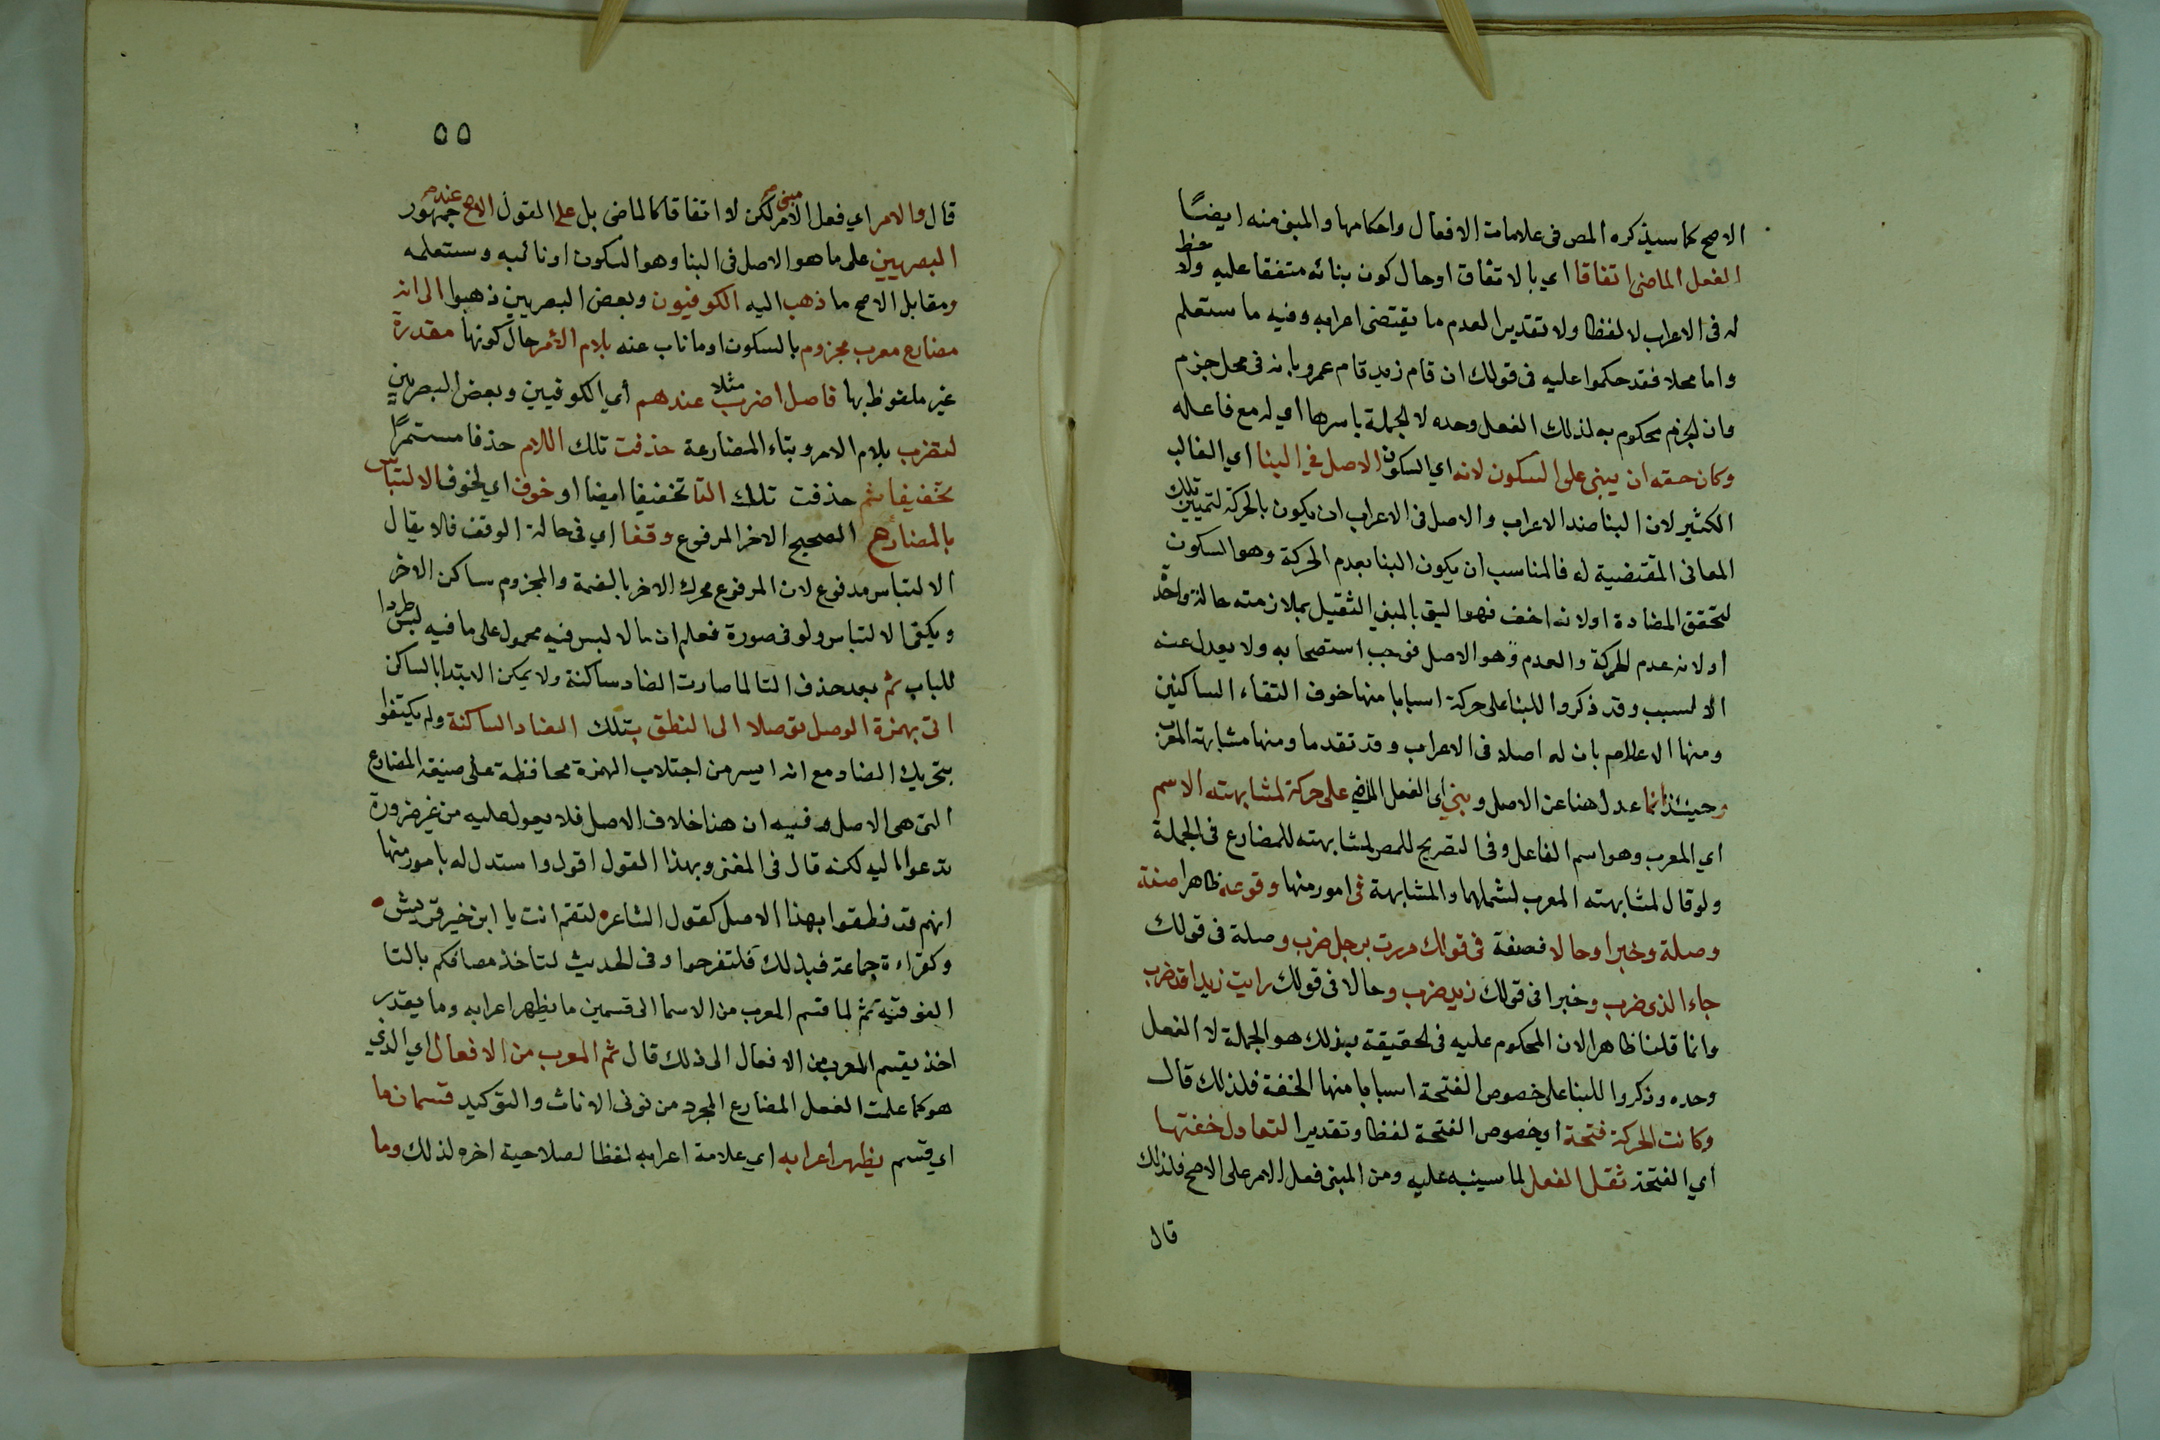 الاصح كما سيذكره المص فى علامات الافعال واحكامها والمبنى منه ايضًا
الفعل الماضى اتفاقا اي بالاتفاق اوحال كون بنائه متفقا عليه ولا حظ
له فى الاعراب لا لفظا ولا تقديرا لعدم ما يقتضى اعرابه وفيه ما ستعلم
واما محلا فقد حكموا عليه فى قولك ان قام زيد قام عمرو بانه فى محل جزم
وان الجزم محكوم به لذلك الفعل وحده لا لجملة باسرها اي له مع فاعله
وكان حقه ان يبنى على السكون لانه اي السكون الاصل في البنا اي الغالب
الكثير لان البنا ضد الاعراب والاصل فى الاعراب ان يكون بالحركة لتمييز تلك
المعانى المقتضية له فالمناسب ان يكون البنا بعدم الحركة وهو السكون
لتحقق المضادة اولانه اخف فهو اليق بالمبني الثقيل بملازمته حالة واحدة
اولانه عدم الحركة والعدم هو الاصل فوجب استصحابه ولا يعدل عنه
الا لسبب وقد ذكروا للبنا على حركة اسبابا منها خوف التقاء الساكنين
ومنها الاعلام بان له اصلا فى الاعراب وقد تقدما ومنها مشابهة المعرب
وحينئذ انما عدل هنا عن الاصل وبني اي الفعل الماضي على حركة لمشابهته الاسم
اي المعرب وهو اسم الفاعل وفى التصريح للمص لمشابهته للمضارع فى الجملة
ولو قال لمشابهته المعرب لشملهما والمشابهة فى امور منها وقوعه ظاهرا صفة
وصلة وخبرا وحالا فصفة فى قولك مررت برجل ضرب وصلة فى قولك
جاء الذى ضرب وخبرا فى قولك زيد ضرب وحالا فى قولك رايت زيدا قد ضرب
وانما قلنا ظاهرا لان المحكوم عليه فى الحقيقة بذلك هو الجملة لا الفعل
وحده وذكروا للبنا على خصوص الفتحة اسبابا منها الخفة فلذلك قال
وكانت الحركة فتحة اوخصوص الفتحة لفظا وتقديرا لتعادل خفتها
اي الفتحة ثقل الفعل لما سينبه عليه ومن المبنى فعل الامر على الاصح فلذلك
قال
٥٥
قال والامر اي فعل الامر مبنى لكن لا اتفاقا كالماضى بل على القول الاصح عند جمهور
البصريين على ما هو الاصل فى البنا وهو السكون او نائبه وستعلمه
ومقابل الاصح ما ذهب اليه الكوفيون وبعض البصريين ذهبوا الى انه
مضارع معرب مجزوم بالسكون او ما ناب عنه بلام الأمر حال كونها مقدرة
غير ملفوظ بها فاصل اضرب مثلا عندهم أي الكوفيين وبعض البصريين
لتضرب بلام الامر وبتاء المضارعة حذفت تلك اللام حذفا مستمرًا
تخفيفا ثم حذفت تلك التا تخفيفا ايضا او خوف اي لخوف الالتباس
بالمضارع الصحيح الاخر المرفوع وقفا اي فى حالة الوقف فلا يقال
الالتباس مدفوع لان المرفوع محرك الاخر بالضمة والمجزوم ساكن الاخر
ويكفى الالتباس ولو فى صورة فعلم ان ما لا لبس فيه محمول على ما فيه لبس طردا
للباب ثم بعد حذف التا لما صارت الضاد ساكنة ولا يمكن الابتدا بالساكن
اتى بهمزة الوصل توصلا الى النطق بتلك الضاد الساكنة ولم يكتفوا
بتحريك الضاد مع انه ايسر من اجتلاب الهمزة محافظة على صيغة المضارع
التى هى الاصل وفيه ان هذا خلاف الاصل فلا يعول عليه من غير ضرورة
تدعو اليه لكنه قال فى المغنى وبهذا القول اقول واستدل له بامور منها
انهم قد نطقوا بهذا الاصل كقول الشاعر لتقم انت يا ابن خير قريش
وكقراءة جماعة فبذلك فلتفرحوا وفى الحديث لتاخذ مصافكم بالتا
الفوقية ثم لما قسم المعرب من الاسما الى قسمين ما يظهر اعرابه وما يقدر
اخذ يقسم المعرب من الافعال الى ذلك قال ثم المعرب من الافعال اي الذي
هو كما علمت الفعل المضارع المجرد من نونى الاناث والتوكيد قسمان ما
اي قسم يظهر اعرابه اي علامة اعرابه لفظا لصلاحية اخره لذلك وما